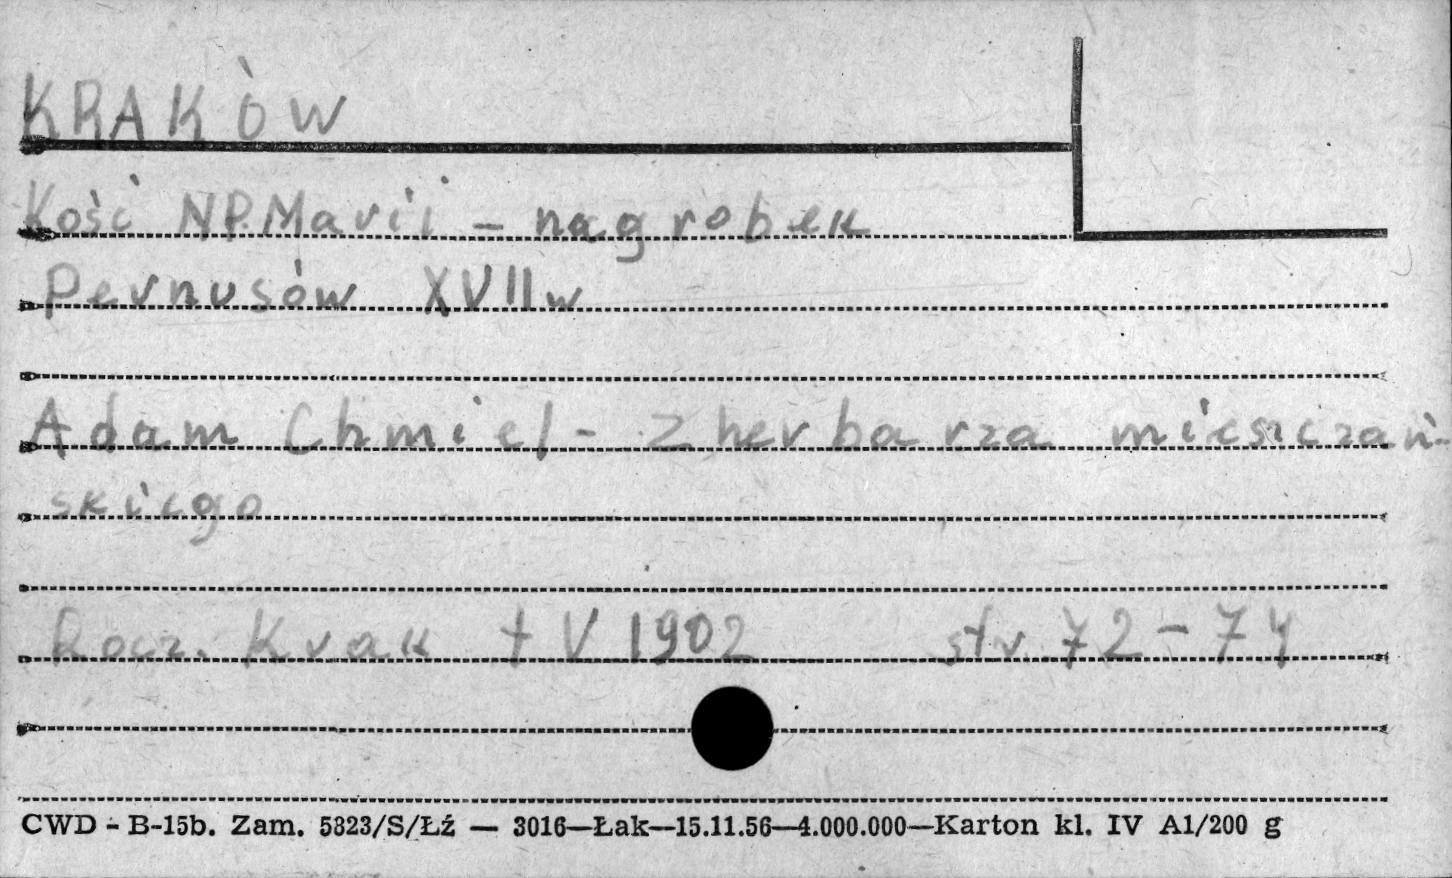 KRAKÓW
Kość NP. Marii – nagrobek
Pernusów XVII w
Adam Chmiel - Z herbarza mieszczań-
skiego
Rocz. Krak t V 1902 str. 72-74
CWD - B-15b. Zam. 5323/S/Łź — 3016—Łak—15.11.56—4.000.000—Karton kl. IV A1/200 g